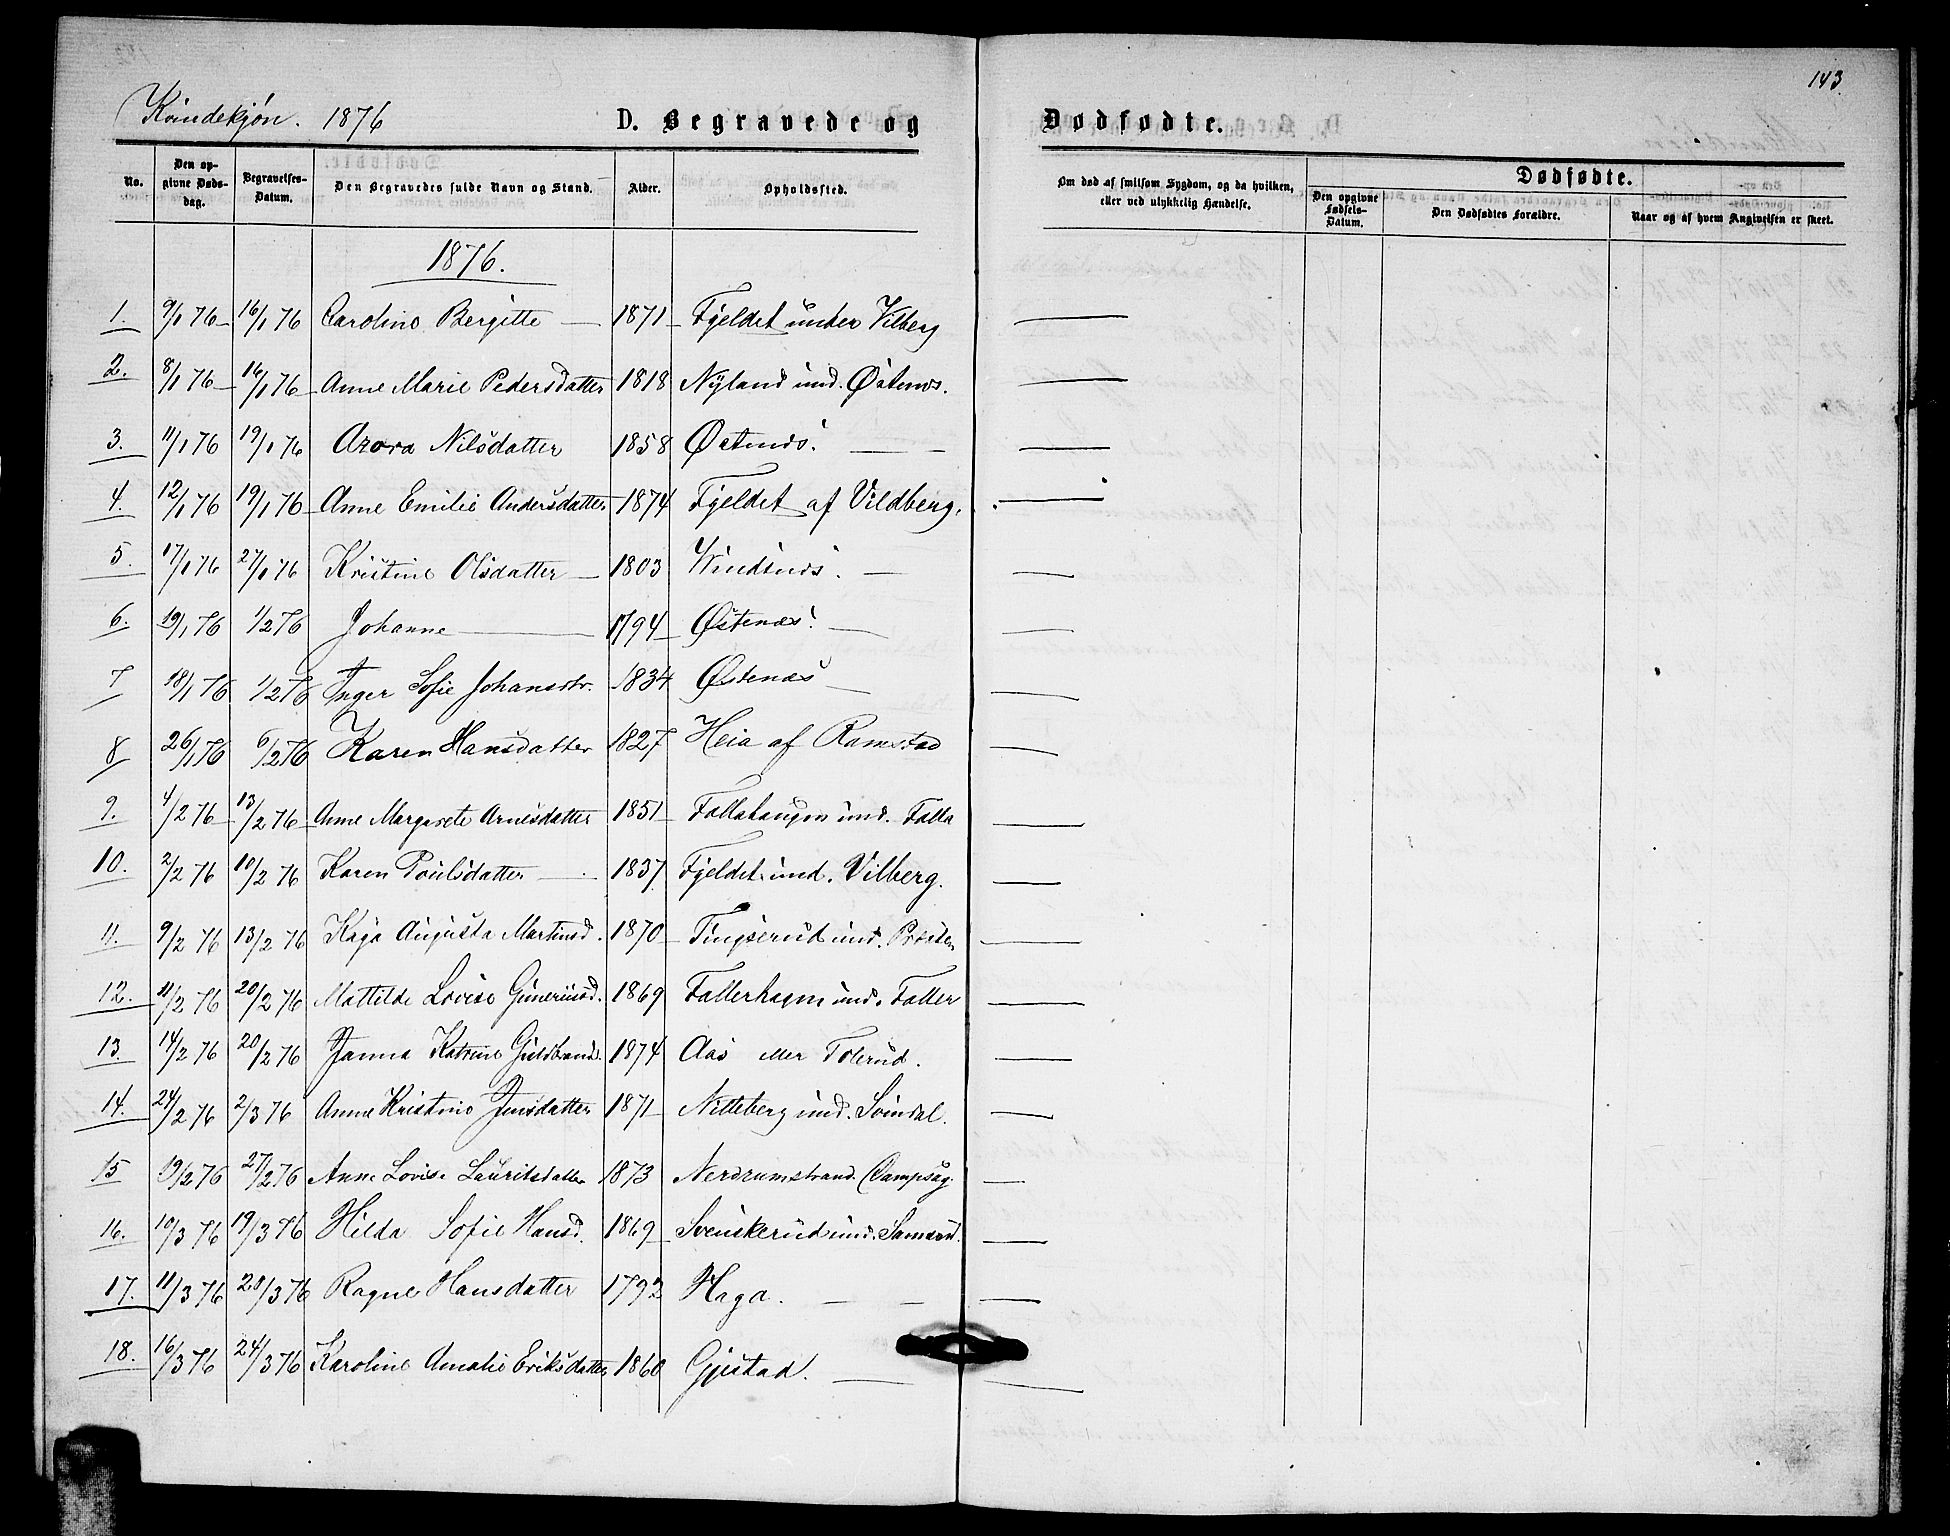 143.
Kvindekjøn. 1876 D. Begravede og Dødfødte.
No. Den opgivne Døds-dag. Begravelses-Datum. Den Begravedes fulde Navn og Stand. Alder. Opholdssted. Om død af smitsom Sygdom, og da hvilken, eller ved ulykkelig Hændelse. Dødfødte. Den opgivne Fødsels-Datum. Den Dødfødtes Forældre. Naar og af hvem Angivelsen er skeet.
1876.
1. 9/1 76 16/1 76 Caroline Bergitte 1871 Fjeldet under Vilberg
2. 8/1 76 16/1 76 Anne Marie Pedersdatter 1818 Nyland und. Østenæs.
3. 11/1 76 19/1 76 Azora Nilsdatter 1858 Østenæs.
4. 12/1 76 19/1 76 Anne Emilie Andersdatter 1874 Fjeldet af Vildberg.
5. 17/1 76 27/1 76 Kristine Olsdatter 1803
6. 19/1 76 1/2 76 Johanne 1794 Østenæs.
7 18/1 76 1/2 76 Inger Sofie Johansdtr. 1834 Østenæs
8 26/1 76 6/2 76 Karen Hansdatter 1827 Heia af Ramstad
9. 4/2 76 13/2 76 Anne Margarete Arnesdatter 1851 Fallahaugen und. Falla
10. 2/2 76 10/2 76 Karen Poulsdatter 1837 Fjeldet und. Vilberg.
11. 9/2 76 13/2 76 Kaja Augusta Martinsd. 1870 Tingserud und.
12. 11/2 76 20/2 76 Mattilde Lovise Guneriusd. 1869 Fallerhagen und. Faller
13. 14/2 76 20/2 76 Janna Katrine Guldbrandsd. 1874 Aas eller Tolerud.
14. 24/2 76 2/3 76 Anne Kristine Jensdatter 1871 Nitteberg und. Svindal.
15 19/2 76 27/2 76 Anne Lovise Lauritsdatter 1873 Nerdrumstrand. Dampsag.
16. 10/3 76 19/3 76 Hilda Sofie Hansd. 1869 Svenskerud und.
17. 11/3 76 20/3 76 Ragne Hansdatter 1792 Haga.
18. 16/3 76 24/3 76 Karoline Amalie Eriksdatter 1860 Gjestad.